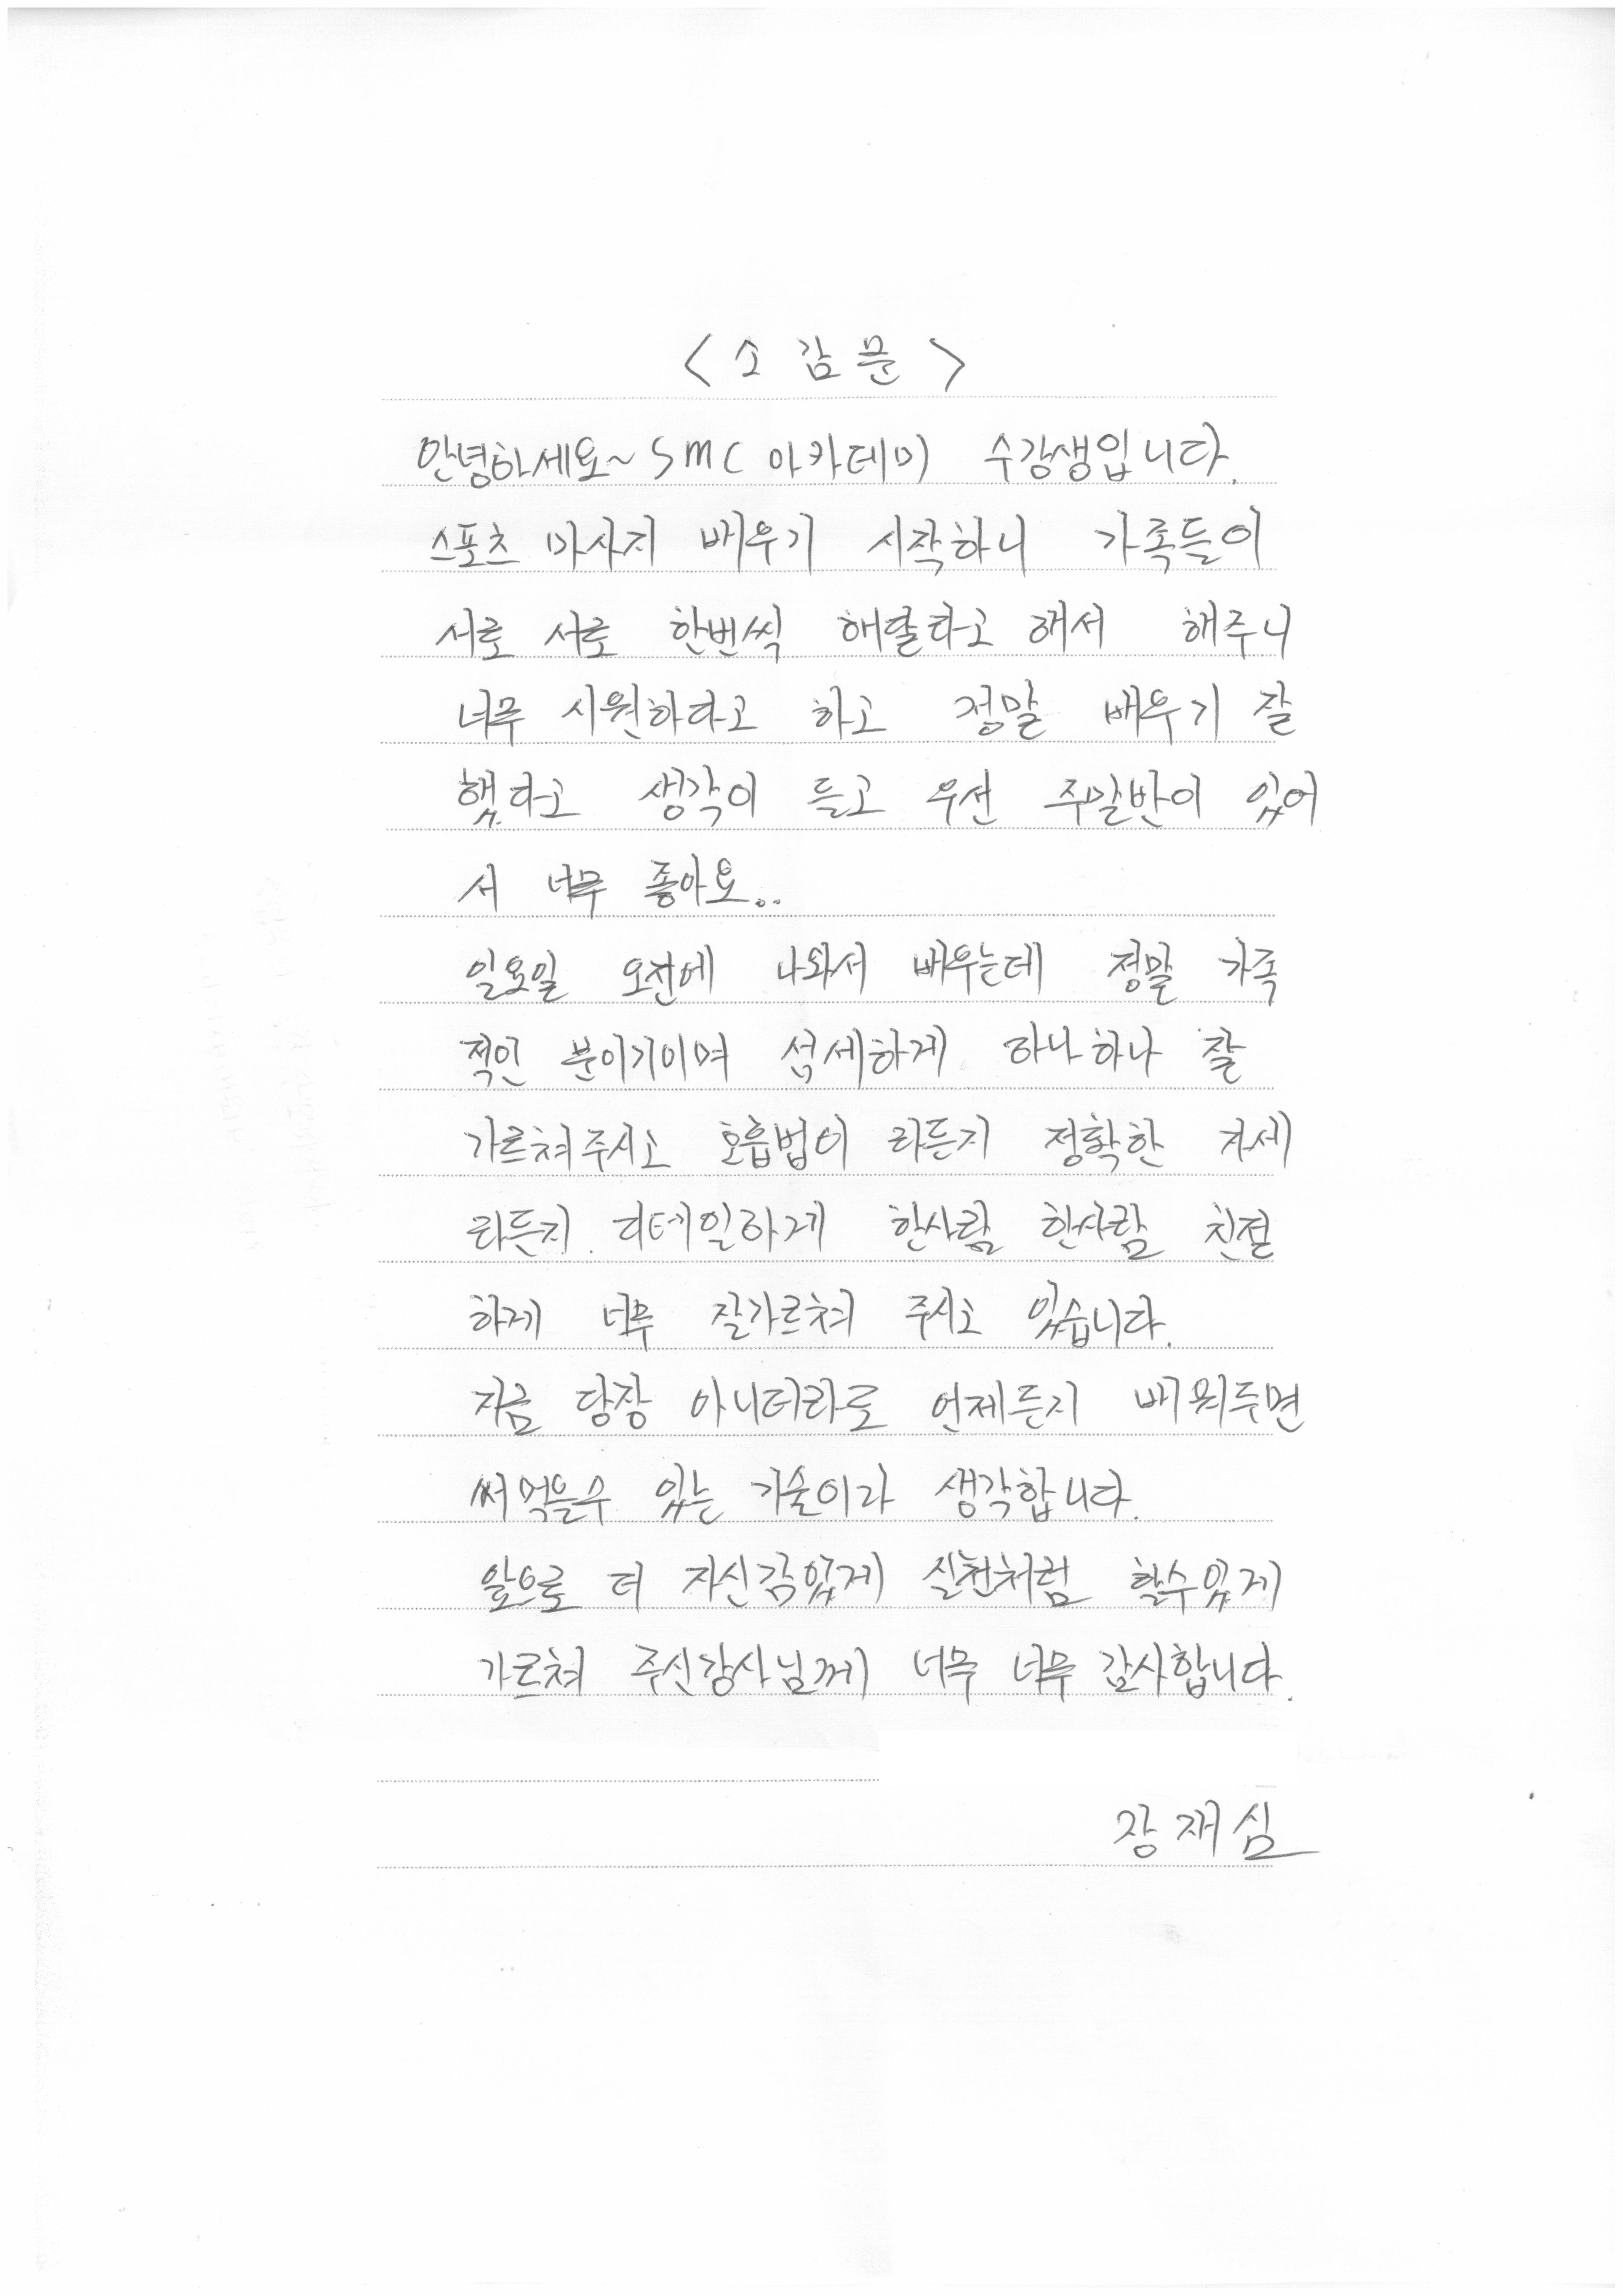 < 소 감 문 >
안녕하세요~ SMC 아카데미 수강생입니다.
스포츠 마사지 배우기 시작하니 가족들이
서로 서로 한번씩 해달라고 해서 해주니
너무 시원하다고 하고 정말 배우기 잘
했다고 생각이 들고 우선 주말반이 있어
서 너무 좋아요..
일요일 오전에 나와서 배우는데 정말 가족
적인 분이기이며 섬세하게 하나하나 잘
가르쳐주시고 호흡법이 라든지 정확한 자세
라든지 디테일하게 한사람 한사람 친절
하게 너무 잘가르쳐 주시고 있습니다.
지금 당장 아니더라로 언제든지 배워두면
써먹을수 있는 기술이라 생각합니다.
앞으로 더 자신감있게 실천처럼 할수있게
가르쳐 주신강사님께 너무 너무 감사합니다.
장재심